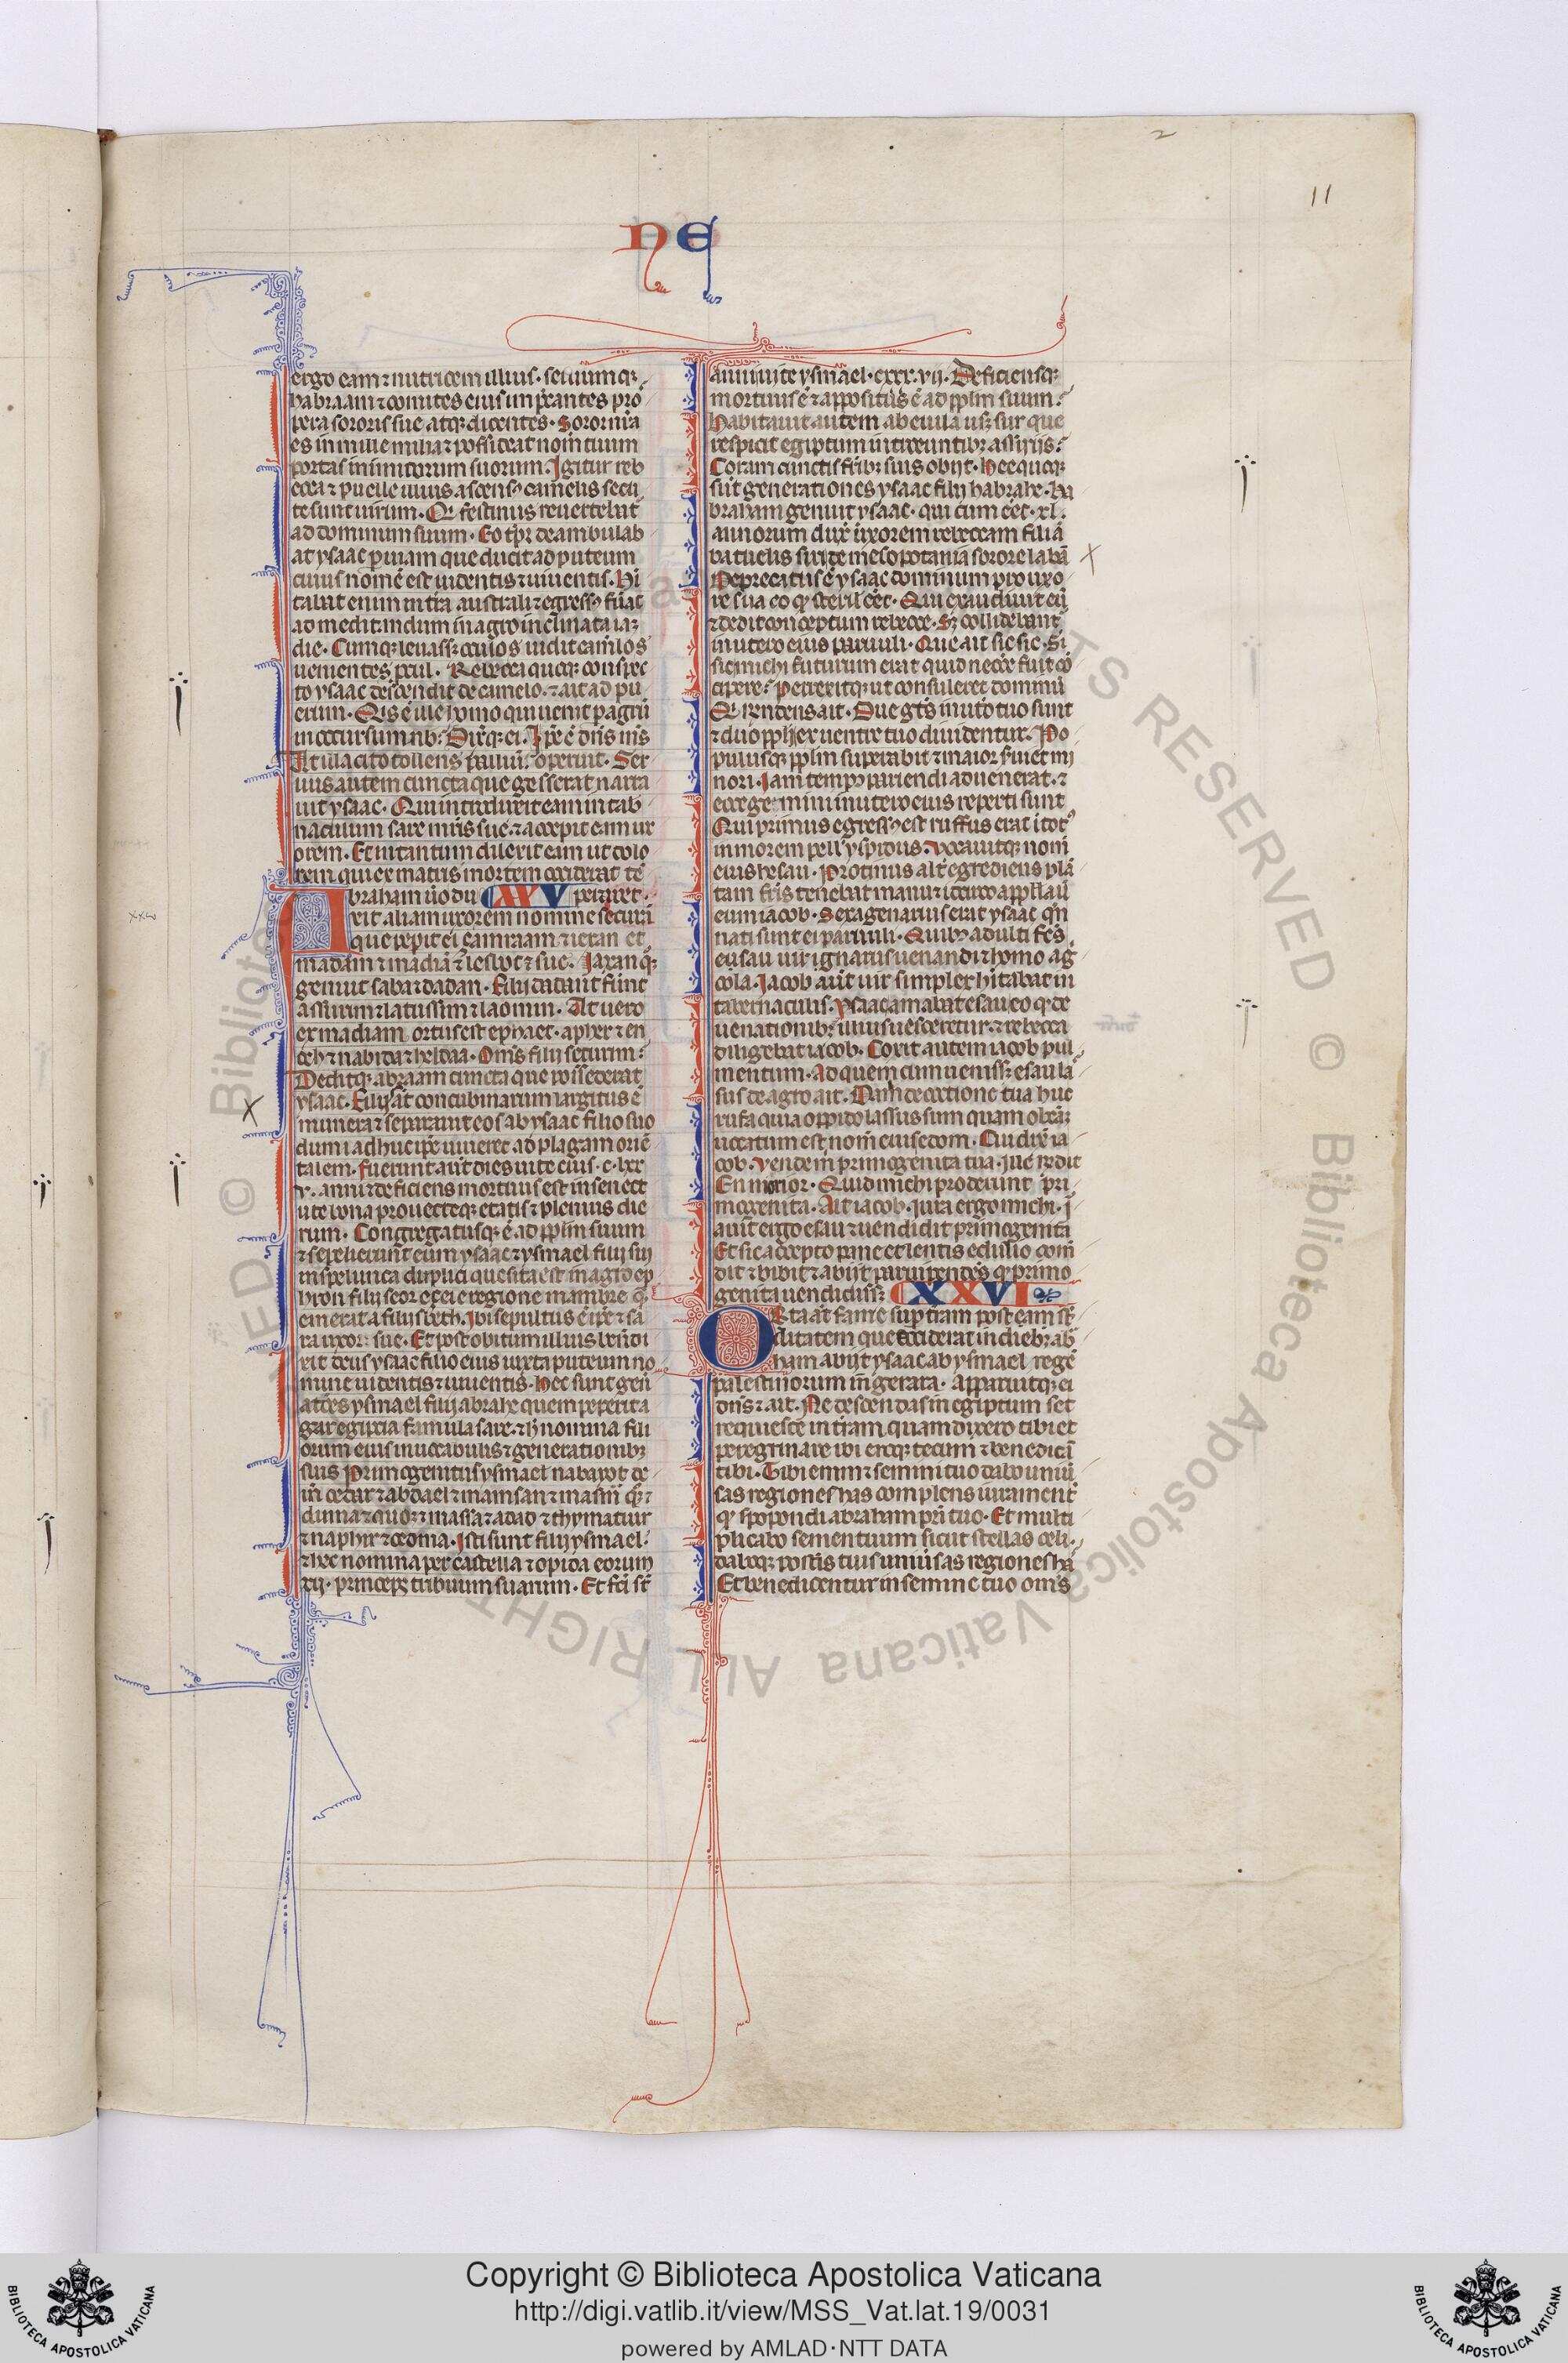 11
NE
ergo eam ⁊ nutricem illius. seruumq;
habraam ⁊ comites eius inp̃cantes pro
spera sorori sue atq; dicentes. Soror nr̃a
es in mille milia ⁊ possideat nom̃ tuum
portas inimicorum suorum. Igitur reb
ecca ⁊ puelle illius ascensis camelis secu
te sunt uirum. Qui festinus reuertebat᷑
ad dominum suum. Eo tp̃r deambulab
at ysaac p̱ uiam que ducit ad puteum
cuius nomẽ est uidentis ⁊ uiuentis. Hi
tabat enim in tr̃a australi ⁊ egressꝰ fũat
ad meditandum in agro inclinata iaꝫ
die. Cumq; leuassꝫ oculos uidit camelos
uenientes p̱cul. Rebecca quoq; conspec
to ysaac descendit de camelo. ⁊ ait ad pu
erum. Quis ẽ ille homo qui uenit p̱ agrũ
in occursum nob. Dix̃q; ei. Ip̃e ẽ dñs m̃s
At illa cito tollens palliũ. operuit. Ser
uus autem cuncta que gesserat narra
uit ysaac. Qui introduxit eam in tab
naculum sare mr̃is sue. ⁊ accepit eam ux
orem. Et in tantum dilexit eam ut dolo
rem qui ex matris mortem acciderat tẽ
Abraham ũo du XXV peraret.
xit aliam uxorem nomine cecurã
que pepit ei çamram ⁊ iexan et
madam ⁊ madiã ⁊ iesboc ⁊ sue. Iaxan q̃;
genuit saba ⁊ dadan. Filij dadan fũnt
assurim ⁊ latussim ⁊ laomim. At uero
ex madiam ortus est ephaet. apher ⁊ en
och ⁊ nabida ⁊ heldaa. Om̃s filij setturim
Deditq; abraam cuncta que possederat
ysaac. Filijs aũt concubinarum largitus ẽ
munera ⁊ separauit eos ab ysaac filio suo
dum adhuc ip̃e uiueret ad plagam oriẽ
talem. fuerunt aũt dies uite eius. c. lxx
v. anni ⁊ deficiens mortuus est in senect
ute bona prouecteq; etatis ⁊ plenus die
rum. Congregatusq; ẽ ad pp̃lm suum
⁊ sepelierunt eum ysaac ⁊ ysmael filij sui
in spelunca duplici que sita est in agro ep
hron filij seor eçei e regione mambre q̃
emerat a filijs beth. Ibi sepultus ẽ ip̃e ⁊ sa
ra uxor sue. Et post obitum illius bñdi
xit deus ysaac filio eius iuxta puteum no
mine uidentis ⁊ uiuentis. Hec sunt geñ
ac̃oes ysmael filij abrahe quem peperit a
gar egiptia famula sare. ⁊ h̃ nomina fili
orum eius in uocabulis ⁊ generationibꝫ
suis Primogenitus ysmael nabaiot. de
in cedar ⁊ abdael ⁊ mamsan ⁊ masm̃ q̃; ⁊
duma ⁊ quoꝫ ⁊ massa ⁊ adad ⁊ thymatur
⁊ naphir ⁊ cedma. Isti sunt filij ysmael.
⁊ hec nomina per castella ⁊ opida eorum
xij. principes tribuum suarum. Et fc̃i st̃
anni uite ysmael. cxxx. vij. Deficiensq;
mortuus ẽ ⁊ appositus ẽ ad pp̃lm suum.
Habitauit autem ab euila usꝫ sur que
respicit egiptum introeuntibꝫ assirijs.
Coram cunctis fr̃ibꝫ suis obijt. Heequoq;
sũt generationes ysaac filij habrahe. Ha
braham genuit ysaac. qui cum eẽt. xl.
annorum dux̃ uxorem rebeccam filiã
batuelis siri de mesopotamia sororẽ labã
Deprecatus ẽ ysaac dominum pro uxo
re sua eo q̱ steril̃ eẽt. Qui exaudiuit eũ
⁊ dedit conceptum rebecce. Sꝫ collidebant᷑
in utero eius paruuli. Que ait sic sic. Si
sic michi futurum erat quid necẽ fuit cõ
cipere. Perrexitq; ut consuleret dominũ
Qui respondens ait. Due gẽtes in utero tuo sunt
⁊ duo pp̃li ex uentre tuo diuidentur. Po
pulusq; pp̃lm superabit ⁊ maior s̃uiet mi
nori. Iam tempꝰ pariendi aduenerat. ⁊
ecce gemini in utero eius reperti sunt
Qui primus egressꝰ est ruffus erat ⁊ totꝰ
in morem pellꝰ yspidus. vocauitq; nom̃
eius hesau. Protinus alt̃ egrediens plã
tam fr̃is tenebat manu ⁊ iccirco app̃llauit
eum iacob. Sexagenarius erat ysaac qñ
nati sunt ei paruuli. Quibꝫ adultis fc̃s
esau uir ignarus uenandi ⁊ homo ag
cola. Iacob aũt uir simplex hitabat in
tabernaculis. Ysaac amabat esau eo q̱ de
uenationibꝫ illius uesceretur. ⁊ rebecca
diligebat iacob. Coxit autem iacob pul
mentum. Ad quem cum uenissꝫ esau la
sus de agro ait. Da m̃ de coctione tua hac
rufa quia oppido lassus sum quam ob cãꝫ
uocatum est nom̃ eius edom. Cui dix̃ ia
cob. Vende m̃ primogenita tua. Ille r̃ndit
En morior. Quid michi proderunt pri
mogenita. Ait iacob. Iura ergo michi. I
auit ergo esau ⁊ uendidit primogenita
Et sic accepto pane et lentis edulio com̃
dit ⁊ bibit ⁊ abijt paruipendẽs q̱ primo
genita uendidissꝫ XXVI
Orta aũt fame sup̱ t̃ram post eam st̃
ilitatem que acciderat in diebꝫ ab̃
ham abijt ysaac ab ysmael regẽ
palestinorum in gerara. Apparuitq; ei
dñs ⁊ ait. Ne descendas in egiptum set
requiesce in t̃ram quam dixero tibi et
peregrinare ibi eroq; tecum ⁊ benedicã
tibi. Tibi enim ⁊ semini tuo dabo uniũ
sas regiones has complens iurament̃
q̱ spopondi abraham pr̃i tuo. Et multi
plicabo semen tuum sicut stellas celi.
daboq; post̃is tuis uniũsas regiones hã
Et benedicentur in semine tuo om̃s
Copyright © Biblioteca Apostolica Vaticana
http://digi.vatlib.it/view/MSS_Vat.lat.19/0031
powered by AMLAD·NTT DATA
BIBLIOTECA APOSTOLICA VATICANA
BIBLIOTECA APOSTOLICA VATICANA